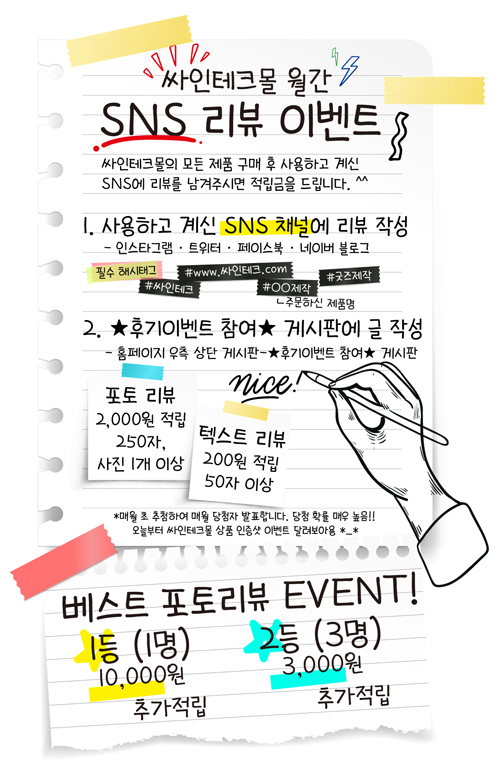 싸인테크몰 월간
SNS 리뷰 이벤트
싸인테크몰의 모든 제품 구매 후 사용하고 계신
SNS에 리뷰를 남겨주시면 적립금을 드립니다. ^^
1. 사용하고 계신 SNS 채널에 리뷰 작성
- 인스타그램 · 트위터 · 페이스북 · 네이버 블로그
필수 해시태그 #www.싸인테크.com #굿즈제작
#싸인테크 #OO제작
ㄴ주문하신 제품명
2. ★후기이벤트 참여★ 게시판에 글 작성
- 홈페이지 우측 상단 게시판-★후기이벤트 참여★ 게시판
nice!
포토 리뷰
2,000원 적립
250자,
사진 1개 이상
텍스트 리뷰
200원 적립
50자 이상
*매월 초 추첨하여 매월 당첨자 발표합니다. 당첨 확률 매우 높음!!
오늘부터 싸인테크몰 상품 인증샷 이벤트 달려보아용 *_*
베스트 포토리뷰 EVENT!
1등 (1명)
10,000원
추가적립
2등 (3명)
3,000원
추가적립